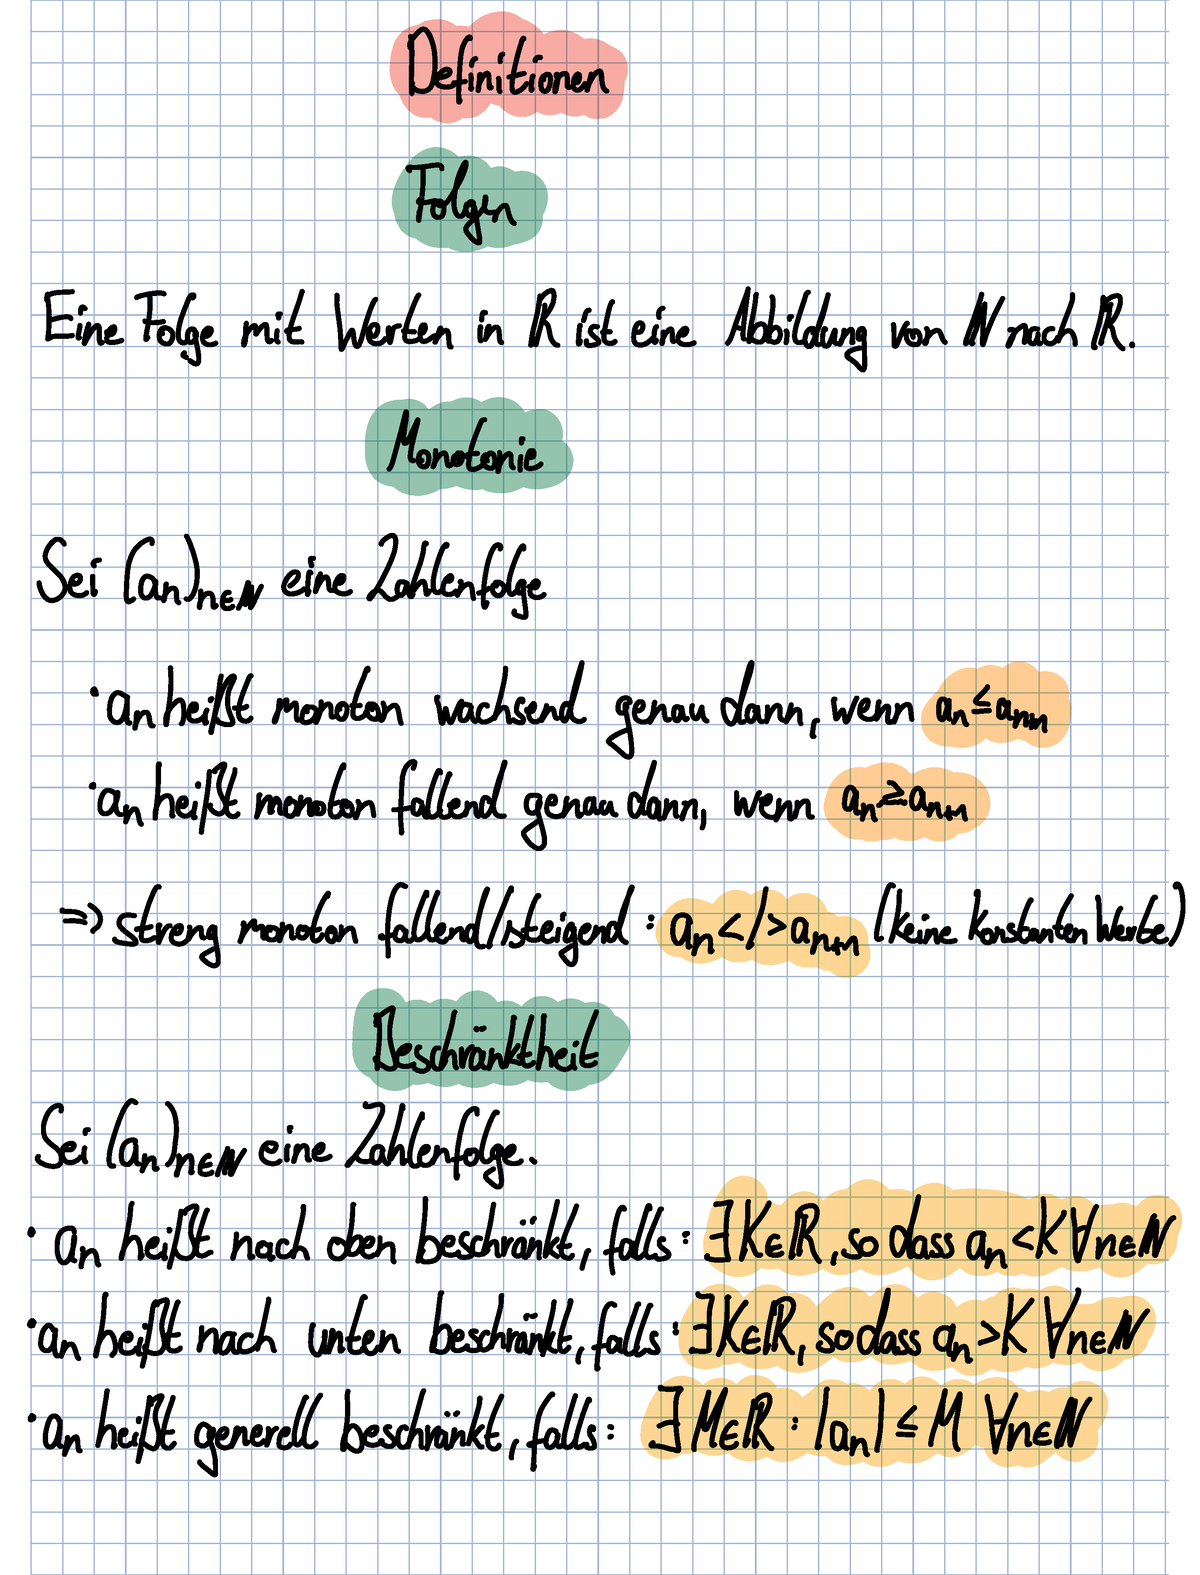 Definitionen
Folgen
Eine Folge mit Werten in ℝ ist eine Abbildung von ℕ nach ℝ.
Monotonie
Sei (an)n∈ℕ eine Zahlenfolge
· an heißt monoton wachsend genau dann, wenn an ≤ an+1
· an heißt monoton fallend genau dann, wenn an ≥ an+1
=> streng monoton fallend/steigend : an </> an+1 (keine konstanten Werte)
Beschränktheit
Sei (an)n∈ℕ eine Zahlenfolge.
· an heißt nach oben beschränkt, falls : ∃K∈ℝ, so dass an <K ∀n∈ℕ
· an heißt nach unten beschränkt, falls : ∃K∈ℝ, so dass an >K ∀n∈ℕ
· an heißt generell beschränkt, falls : ∃M∈ℝ : |an| ≤ M ∀n∈ℕ